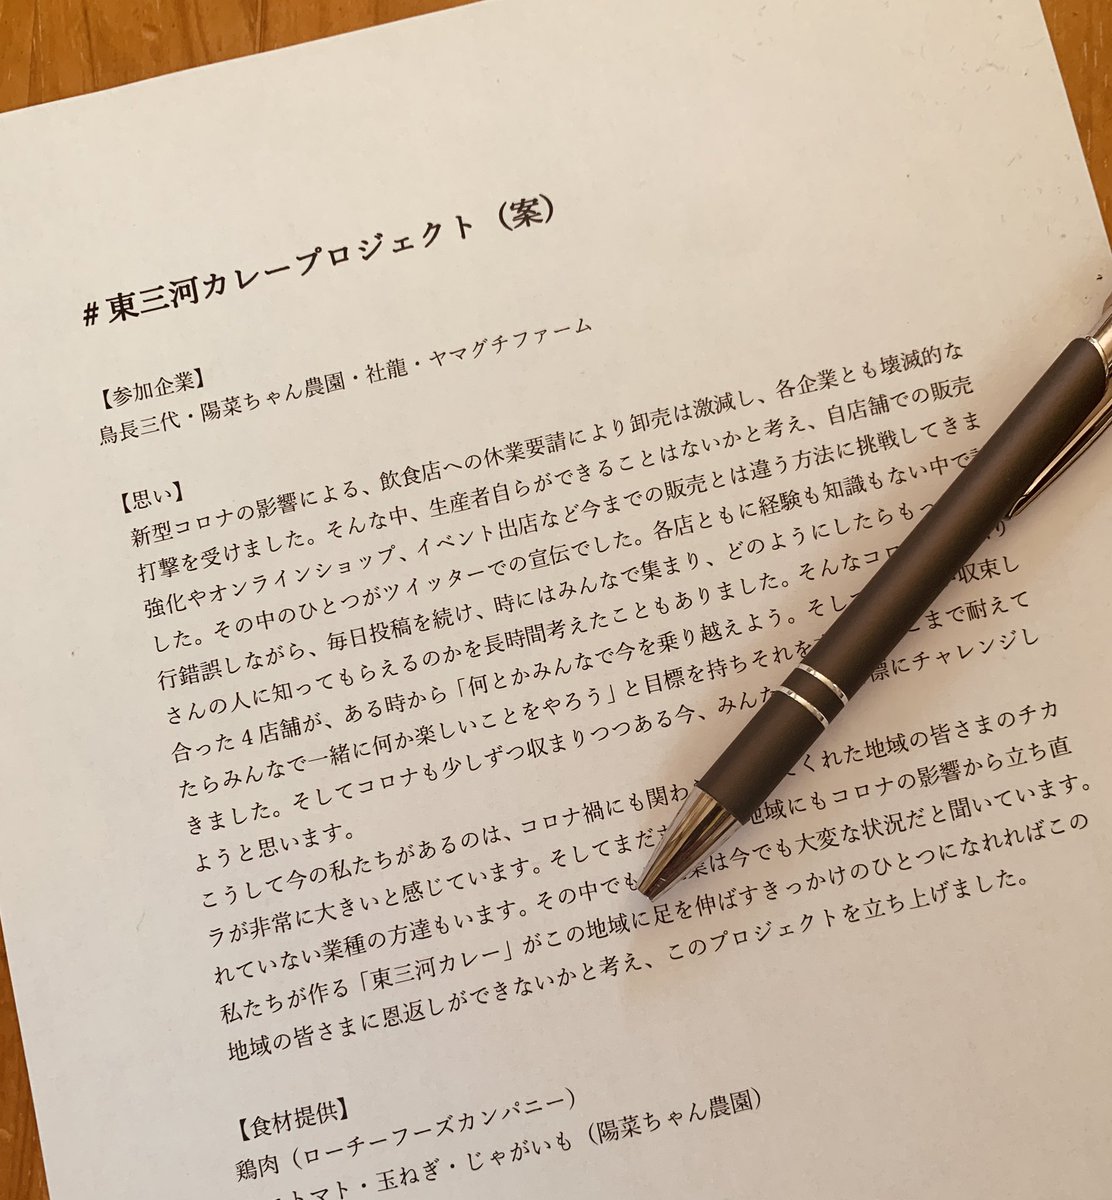 #東三河カレープロジェクト（案）
【参加企業】
鳥長三代・陽菜ちゃん農園・社龍・ヤマグチファーム
【思い】
新型コロナの影響による、飲食店への休業要請により卸売は激減し、各企業とも壊滅的な
打撃を受けました。そんな中、生産者自らができることはないかと考え、自店舗での販売
強化やオンラインショップ、イベント出店など今までの販売とは違う方法に挑戦してきま
した。その中のひとつがツイッターでの宣伝でした。各店ともに経験も知識もない中で
行錯誤しながら、毎日投稿を続け、時にはみんなで集まり、どのようにしたらもっ
さんの人に知ってもらえるのかを長時間考えたこともありました。そんなコロ 収束し
合った４店舗が、ある時から「何とかみんなで今を乗り越えよう。そして こまで耐えて
たらみんなで一緒に何か楽しいことをやろう」と目標を持ちそれを 標にチャレンジし
きました。そしてコロナも少しずつ収まりつつある今、みんな
ようと思います。
こうして今の私たちがあるのは、コロナ禍にも関わ くれた地域の皆さまのチカ
ラが非常に大きいと感じています。そしてまだ 地域にもコロナの影響から立ち直
れていない業種の方達もいます。その中でも 業は今でも大変な状況だと聞いています。
私たちが作る「東三河カレー」がこの地域に足を伸ばすきっかけのひとつになれればこの
地域の皆さまに恩返しができないかと考え、このプロジェクトを立ち上げました。
【食材提供】
鶏肉（ローチーフーズカンパニー）
トマト・玉ねぎ・じゃがいも（陽菜ちゃん農園）